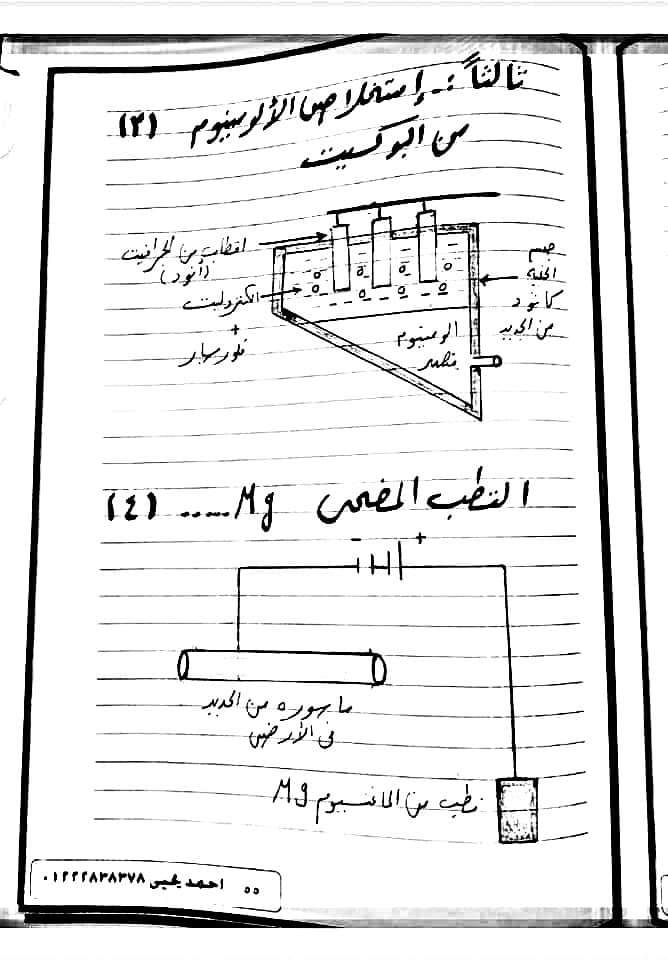 ثالثاً :- إستخلاص الألومينيوم (٣)
من البوكسيت
اقطاب من الجرافيت
(أنود)
الكتروليت
+
فلورسبار
جسم
الخليه
كاثود
من الحديد
الومنيوم
منصهر
القطب المضحى Mg ..... (٤)
- +
ماسوره من الحديد
فى الأرض
قطب من الماغنسيوم Mg
٥٥ احمد يحيى ٠١٢٢٢٨٣٨٣٧٨